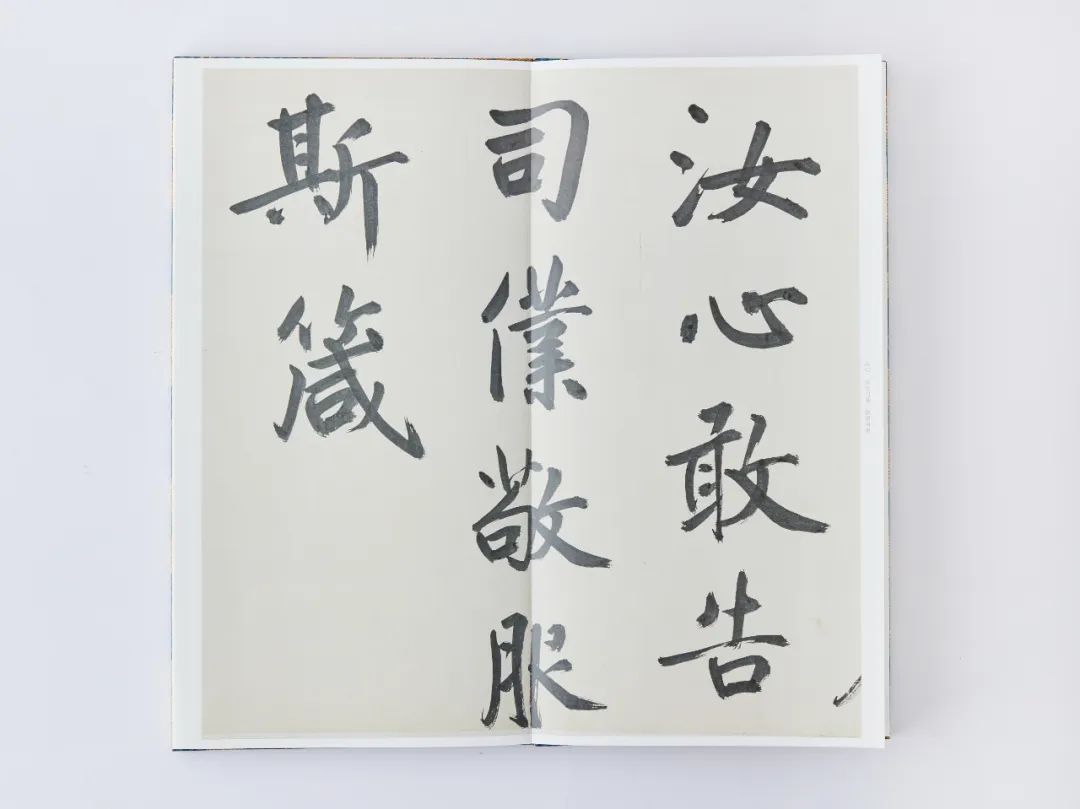 汝心敢告
司僕敬服
斯箴